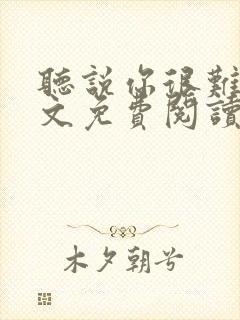 聽說你很難
文免費閱讀
木夕朝兮